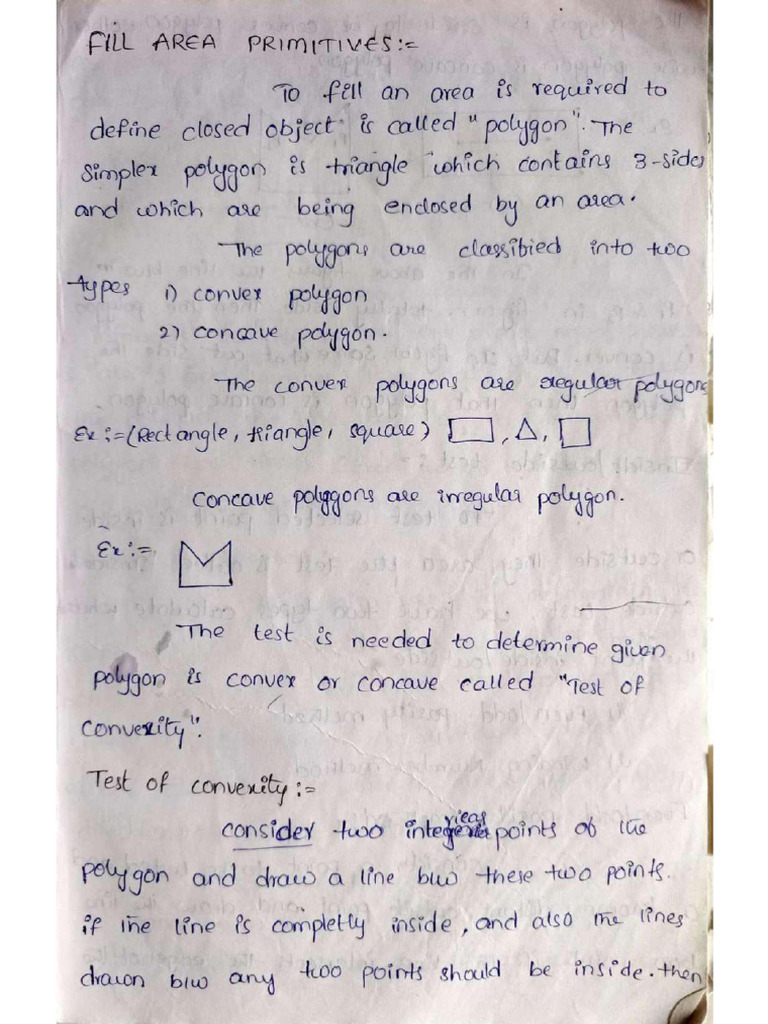 FILL AREA PRIMITIVES:=
To fill an area is required to
define closed object is called "polygon". The
simplex polygon is triangle which contains 3-sides
and which are being enclosed by an area.
The polygons are classibied into two
types 1) convex polygon
2) concave polygon.
The convex polygons are regular polygons
Ex:=(Rectangle, triangle, square) , ,
Concave polygons are irregular polygon.
Ex:=
The test is needed to determine given
polygon is convex or concave called "Test of
convexity".
Test of convexity:=
consider two points of the
polygon and draw a line b/w these two points.
if the line is completly inside, and also the lines
drawn b/w any two points should be inside. then